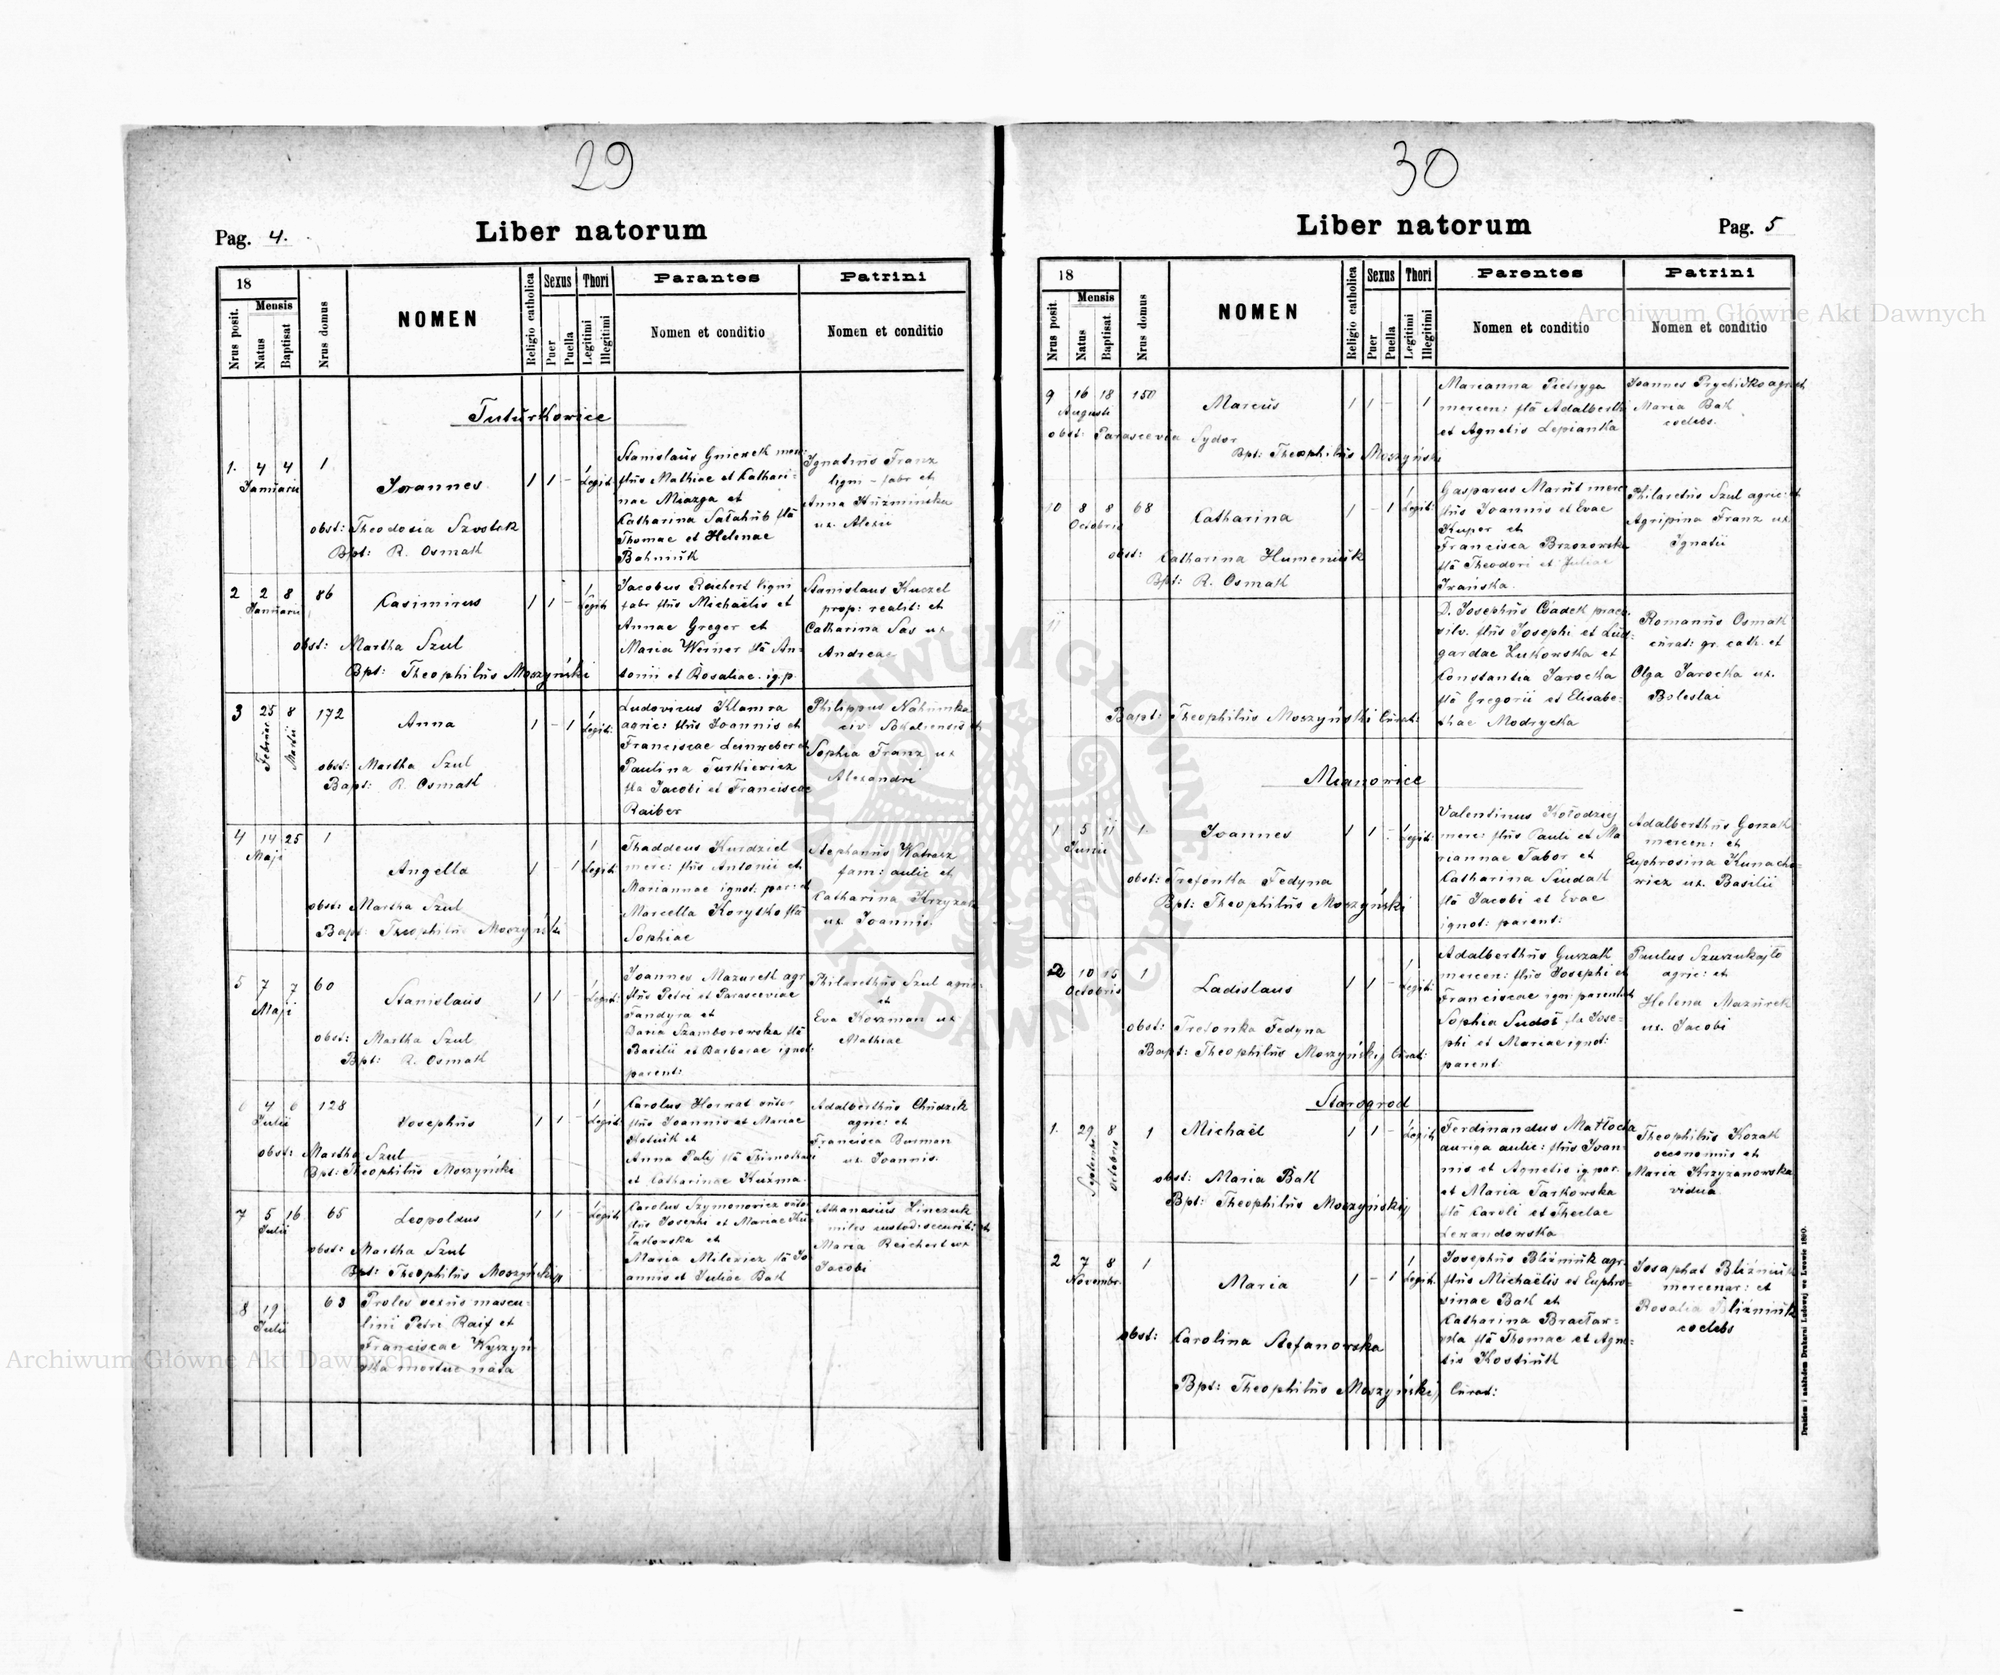 29
Pag. 4.
Liber natorum
18
Mensis
Nrus posit.
Natus
Baptisat
Nrus domus
NOMEN
Religio catholica
Sexus
Puer
Puella
Thori
Legitimi
Illegitimi
Parantes
Nomen et conditio
Patrini
Nomen et conditio
Tuturkowice
1. 4 4 1
Januarii
Joannes
1 1 - 1 Legit:
obst: Theodosia Szostak
Bpt: R. Osmak
Stanislaus Gniezek mer:
flius Mathiae et Cathari-
nae Miazga et
Catharina Sałahub flā
Thomae et Helenae
Bahniuk
Ignatius Franz
lign - fabr et
Anna Huzmińska
ux. Alexii
2 2 8 86
Januarii
Casimirus
1 1 - 1 Legit:
obst: Martha Szul
Bpt: Theophilus Moszyński
Jacobus Reichert ligni
fabr flius Michaëlis et
Annae Greger et
Maria Werner flā An-
tonii et Rosaliae. ig.p.
Stanislaus Kuczel
prop: realit: et
Catharina Sas ux
Andreae
3 25 8 172
Februar Martii
Anna
1 - 1 1 Legit:
obst: Martha Szul
Bapt: R. Osmak
Ludovicus Klamra
agric: flius Joannis et
Franciscae Leinweber et
Paulina Turkiewicz
fla Jacobi et Franciscae
Raiber
Philippus Nahumka
civ Sokaliensis et
Sophia Franz ux
Alexandri
4 14 25 1
Maji
Angella
1 - 1 1 Legit:
obst: Martha Szul
Bapt: Theophilus Moszyński
Thaddeus Kurdziel
merc: flius Antonii et
Mariannae ignot: par: et
Marcella Korytko flā
Sophiae
Stephanus Watrasz
fam: aulic et
Catharina Krzyżak
ux. Joannis.
5 7 7 60
Maji
Stanislaus
1 1 - 1 Legit:
obst: Martha Szul
Bpt: R. Osmak
Joannes Mazurek agr
flius Petri et Parasceviae
Fandyra et
Daria Szamborowska flā
Basilii et Barbarae ignot:
parent:
Philarethus Szul agric:
et
Eva Koszman ux
Mathiae
6 4 6 128
Julii
Josephus
1 1 - 1 Legit:
obst: Martha Szul
Bpt: Theophilus Moszyński
Carolus Horwat sutor
flius Joannis et Mariae
Hotuik et
Anna Palij flā Thimothaei
et Catharinae Kuźma.
Adalberthus Chudzik
agric: et
Francisca Furman
ux. Joannis.
7 5 16 65
Julii
Leopoldus
1 1 - 1 Legit:
obst: Martha Szul
Bpt: Theophilus Moszyńskij
Carolus Szymonowicz sutor
flius Josephi et Mariae Ku-
łakowska et
Maria Milewicz flā Jo
annis et Juliae Bak
Athanasius Linczuk
miles custod: securit: et
Maria Reichert ux
Jacobi
8 19 63
Julii
Proles sexus mascu-
lini Petri Raif et
Franciscae Wyszyń-
ska mortue nāta
30
Liber natorum
Pag. 5
18
Mensis
Nrus posit.
Natus
Baptisat.
Nrus domus
NOMEN
Religio catholica
Sexus
Puer
Puella
Thori
Legitimi
Illegitimi
Parentes
Nomen et conditio
Patrini
Nomen et conditio
9 16 18 150
Augusti
Marcus
1 1 - 1
obst: Parascevia Sydor
Bpt: Theophilus Moszyński
Marianna Pietryga
mercen: flā Adalberthi
et Agnetis Lepianka
Joannes Prychidko agr et
Maria Bak
coelebs.
10 8 8 68
Octobris
Catharina
1 - 1 1 Legit:
obst: Catharina Humeniuk
Bpt: R. Osmak
Gasparus Marut merc
flius Joannis et Evae
Kuper et
Francisca Brzozowska
flā Theodori et Juliae
Irańska.
Philaretus Szul agric: et
Agripina Franz ux
Ignatii
11
Bapt: Theophilus Moszyński Curat:
D. Josephus Csadek praef.
silv. flius Josephi et Lud-
gardae Lukowska et
Constantia Jarocka
flā Gregorii et Elisabe-
thae Modrycka
Romanus Osmak
curat: gr. cath. et
Olga Jarocka ux.
Boleslai
Mianowice
1 5 11 1.
Junii
Joannes
1 1 - 1 Legit:
obst: Trefonka Fedyna
Bpt: Theophilus Moszyński
Valentinus Kołodziej
merc: flius Pauli et Ma
riannae Tabor et
Catharina Siudak
flā Jacobi et Evae
ignot: parent:
Adalberthus Gorzak
mercen: et
Euphrosina Kunacho-
wicz ux. Basilii
2 10 15 1
Octobris
Ladislaus
1 1 - 1 Legit:
obst: Trefonka Fedyna
Bapt: Theophilus Moszyńskij Curat:
Adalberthus Gurzak
mercen: flius Josephi et
Franciscae ign: parent: et
Sophia Sudoł fla Jose-
phi et Mariae ignot:
parent:
Paulus Szuszukajło
agric: et
Helena Mazurek
ux. Jacobi
Starogrod
1. 29 8 1
Septembr Octobris
Michaël
1 1 - 1 Legit:
obst: Maria Bak
Bpt: Theophilus Moszyńskij
Ferdinandus Matłocha
auriga aulic: flius Ioan-
nis et Agnetis ig. par.
et Maria Tarkowska
flā Caroli et Theclae
Lewandowska
Theophilus Kozak
oeconomus et
Maria Krzyżanowska
vidua
2 7 8 1
Novembr.
Maria
1 - 1 1 Legit:
obst: Carolina Stefanowska
Bpt: Theophilus Moszyńskij Curat:
Josephus Bliźniuk agr.
flius Michaëlis et Euphro-
sinae Bak et
Catharina Bractaw-
ska flā Thomae et Agne-
tis Kostiuk
Josaphat Bliźniuk
mercenar: et
Rosalia Bliźniuk
coelebs
Drukiem i nakładem Drukarni Ludowej we Lwowie 1890.
Archiwum Główne Akt Dawnych
Archiwum Główne Akt Dawnych
ARCHIWUM GŁÓWNE AKT DAWNYCH